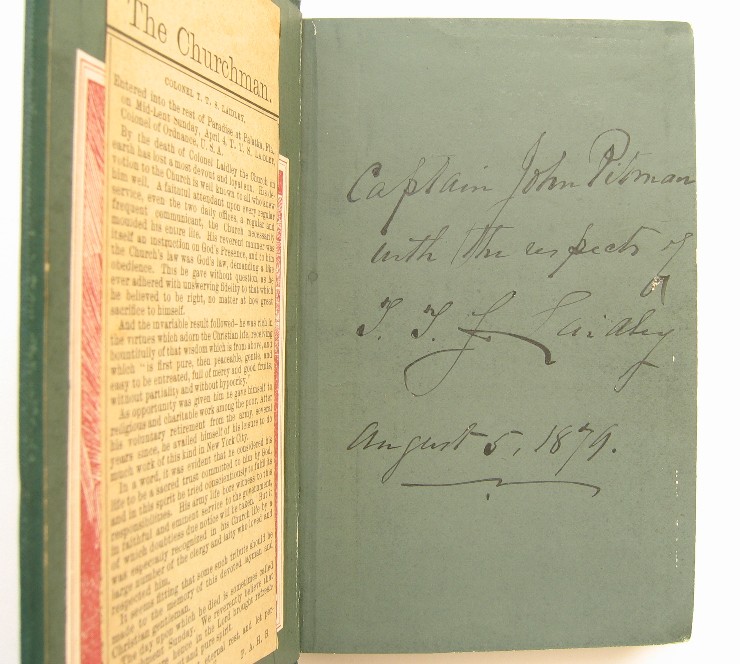 The Churchman.
COLONEL T. T. S. LAIDLEY.
Entered into the rest of Paradise at Palatka, Fla.,
on Mid-Lent Sunday, April 4, T. T. S. LAIDLEY,
Colonel of Ordnance, U. S. A.
By the death of Colonel Laidley the Church on
earth has lost a most devout and loyal son. His de-
votion to the Church is well known to all who knew
him well. A faithful attendant upon every regular
service, even the two daily offices, a regular and
frequent communicant, the Church necessarily
moulded his entire life. His reverent manner was
itself an instruction on God's Presence, and to him
the Church's law was God's law, demanding a like
obedience. This he gave without question, as he
ever adhered with unswerving fidelity to that which
he believed to be right, no matter at how great
sacrifice to himself.
And the invariable result followed—he was rich in
the virtues which adorn the Christian life, receiving
bountifully of that wisdom which is from above, and
which "is first pure, then peaceable, gentle, and
easy to be entreated, full of mercy and good fruits,
without partiality and without hypocrisy."
As opportunity was given him he gave himself to
religious and charitable work among the poor. After
his voluntary retirement from the army, several
years since, he availed himself of his leisure to do
much work of this kind in New York City.
In a word, it was evident that he considered his
life to be a sacred trust committed to him by God,
and in this spirit he tried conscientiously to fulfil its
responsibilities. His army life bore witness to this
in faithful and eminent service to the government,
of which doubtless due notice will be taken. But it
was especially recognized in his Church life by a
large number of the clergy and laity who loved and
respected him.
It seems fitting that some such tribute should be
made to the memory of this devoted layman and
Christian gentleman.
The day upon which he died is sometimes called
Refreshment Sunday. We reverently believe that
hence in the Lord brought refresh-
and pure spirit.
eternal rest, and let per-
F. A. H. B.
Captain John Pitman
with the respects of
T. T. S. Laidley
August 5, 1879.